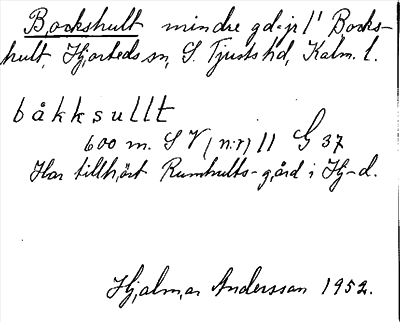 Bockshult mindre gd: jr l' Bocks-
hult Hjorteds sn, S. Tjusts hd, Kalm. l.
båkksullt
600 m. S V (n:r) 11 G 37
Har tillhört Rumhults-gård i Hj-d.
Hjalmar Andersson 1952.